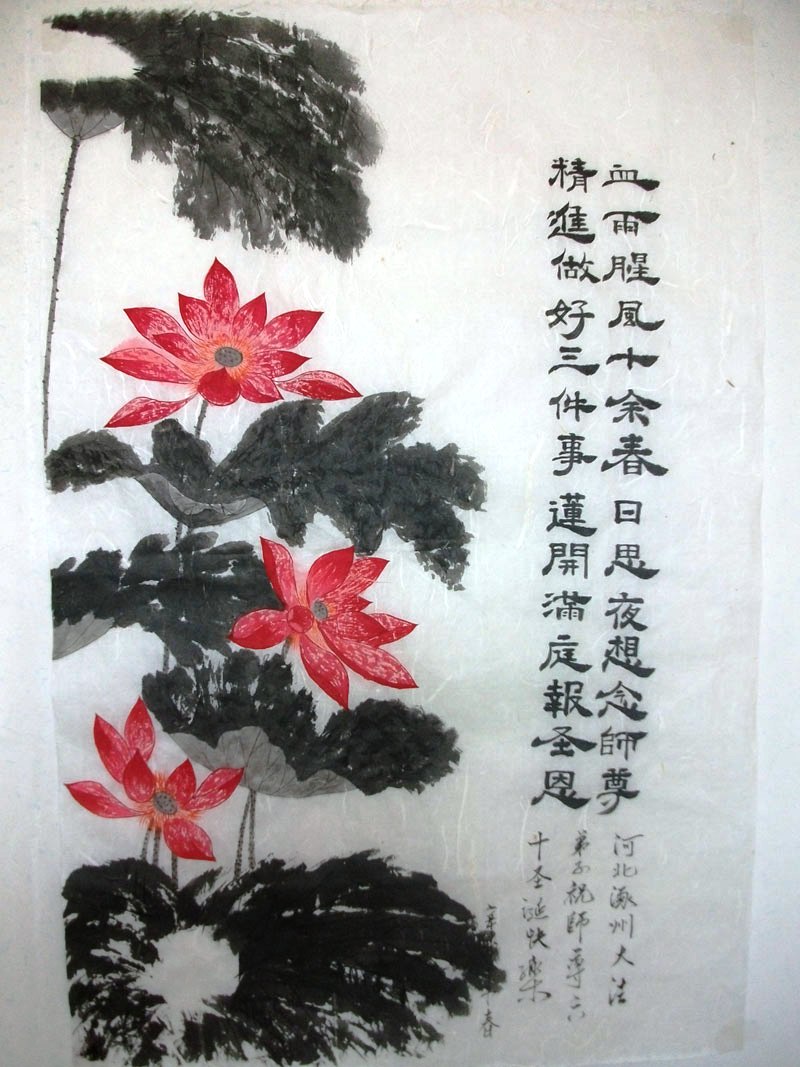 血雨腥風十余春 日思夜想念師尊
精進做好三件事 蓮開滿庭報圣恩
河北涿州大法
弟子祝師尊六
十圣誕快樂
春